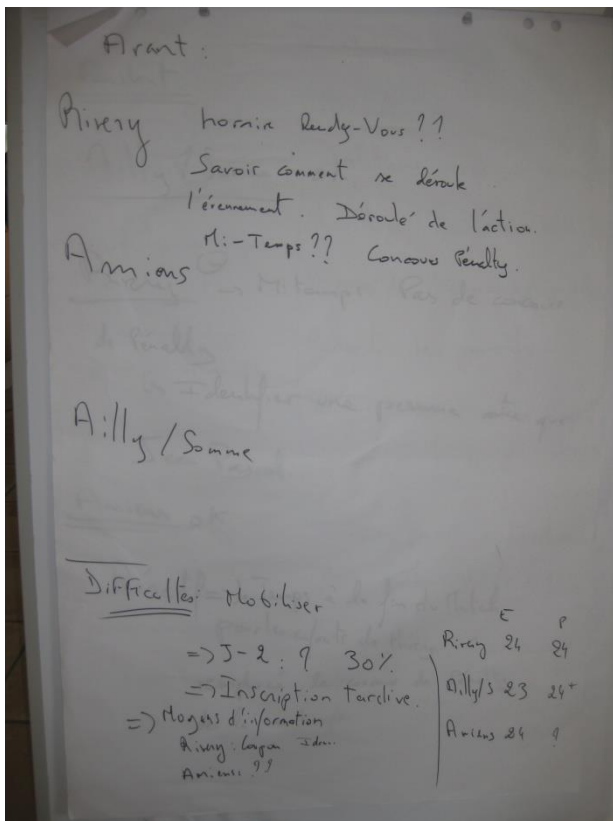 Avant :
Rivery hornir Rendy-Vous ??
Savoir comment se déroule
l'évennement. Déroulé de l'action.
Mi-Temps ?? Concours Pénalty.
Amiens
Ailly / Somme
Difficultés : Mobiliser
=> J-2 : ? 30%
=> Inscription Tardive.
=> Moyens d'information
Rivery : Coupon
Amiens : ??
E P
Rivery 24 24
Ailly/S 23 24+
Amiens 24 ?
Mi-temps Pas de
Pénalty
Identifier une personne